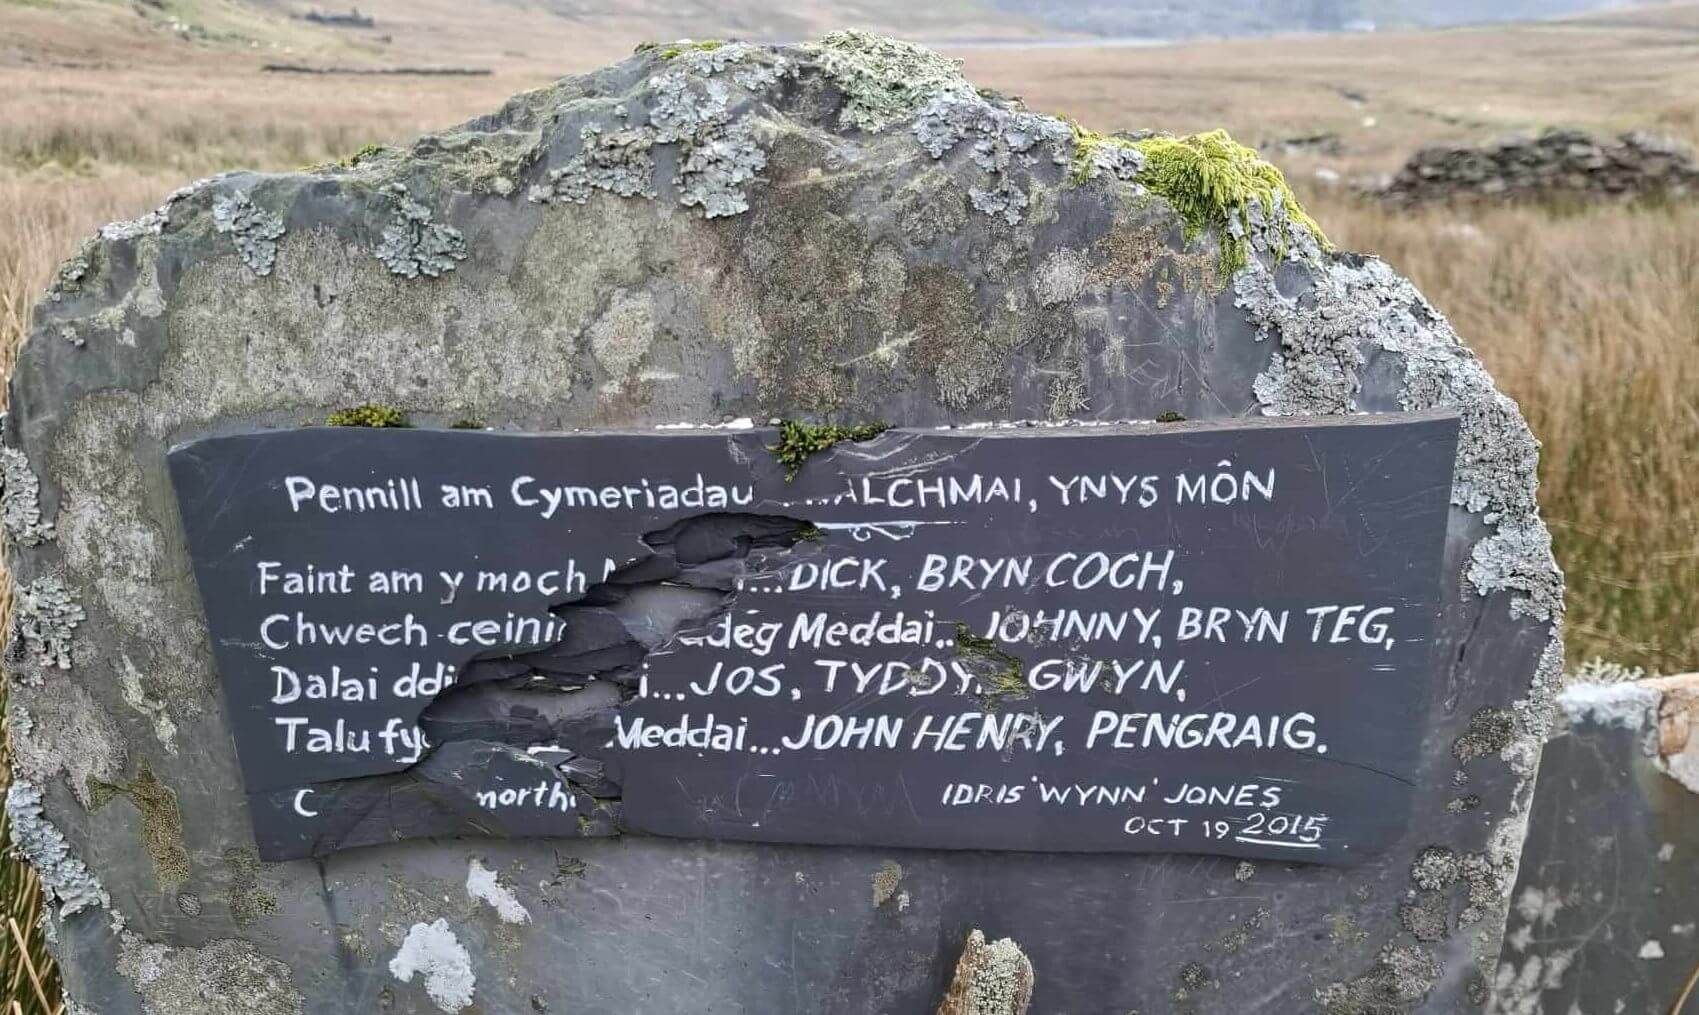 Pennill am Cymeriadau ALCHMAI, YNYS MÔN
Faint am y moch ...DICK, BRYN COCH,
Chwech Meddai.. JOHNNY, BRYN TEG,
Dalai ...JOS, TYDDY. GWYN,
Talu Meddai...JOHN HENRY, PENGRAIG.
IDRIS 'WYNN' JONES
OCT 19 2015